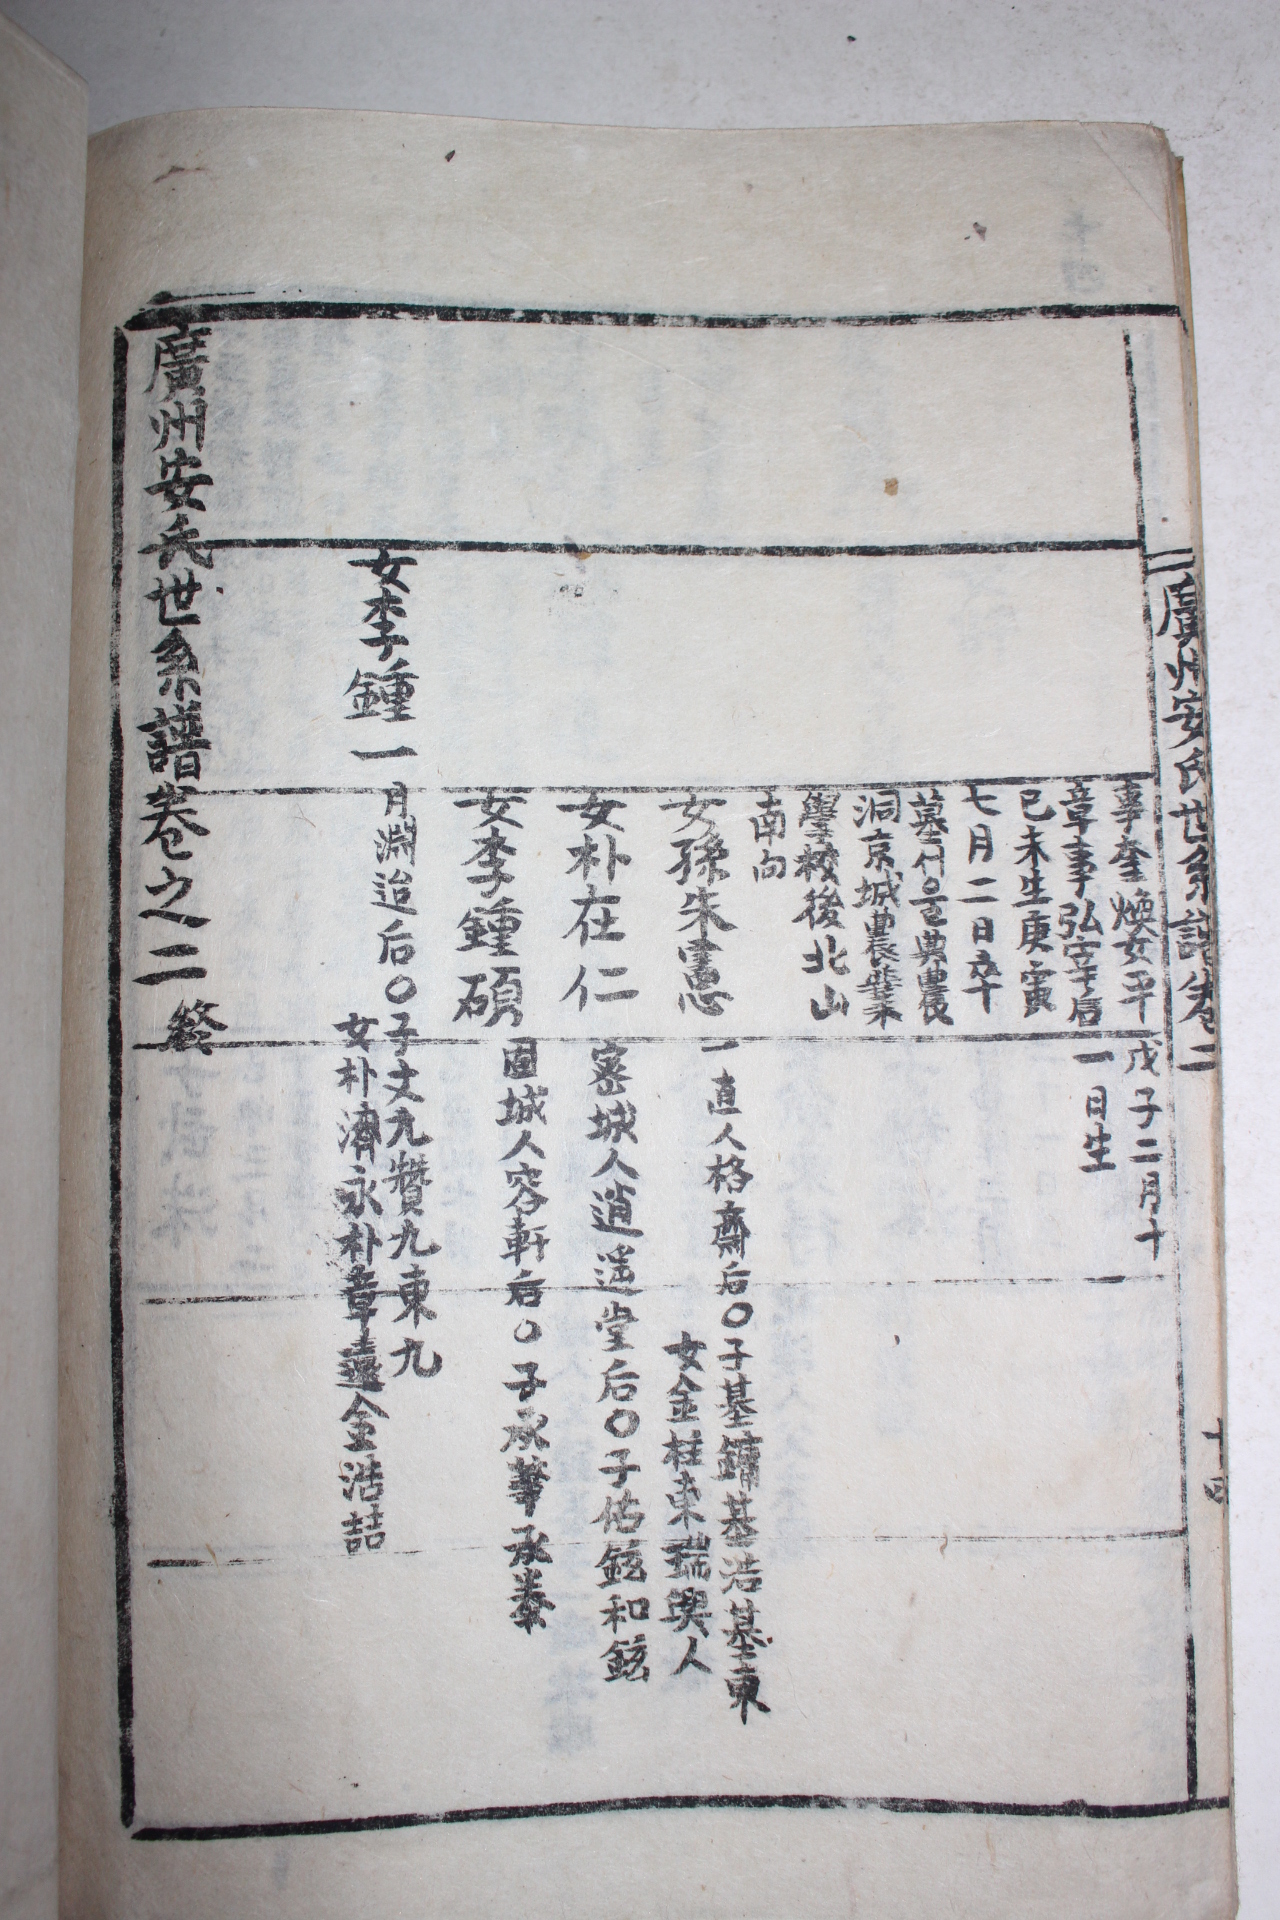 廣州安氏世系譜卷二
十四
事奎煥女平
章事弘宰后
己未生庚寅
七月二日卒
墓서울典農
洞京城農業
學校後北山
南向
戊子二月十
一日生
女孫朱憲
一直人格齋后〇子基鏞基浩基東
女金柱東瑞興人
女朴在仁
密城人逍遥堂后〇子佑鉉和鉉
女李鍾碩
固城人容軒后〇子承華承奉
女李鍾一
月淵迨后〇子丈九贊九東九
女朴濟永朴章遠金浩喆
廣州安氏世系譜卷之二終